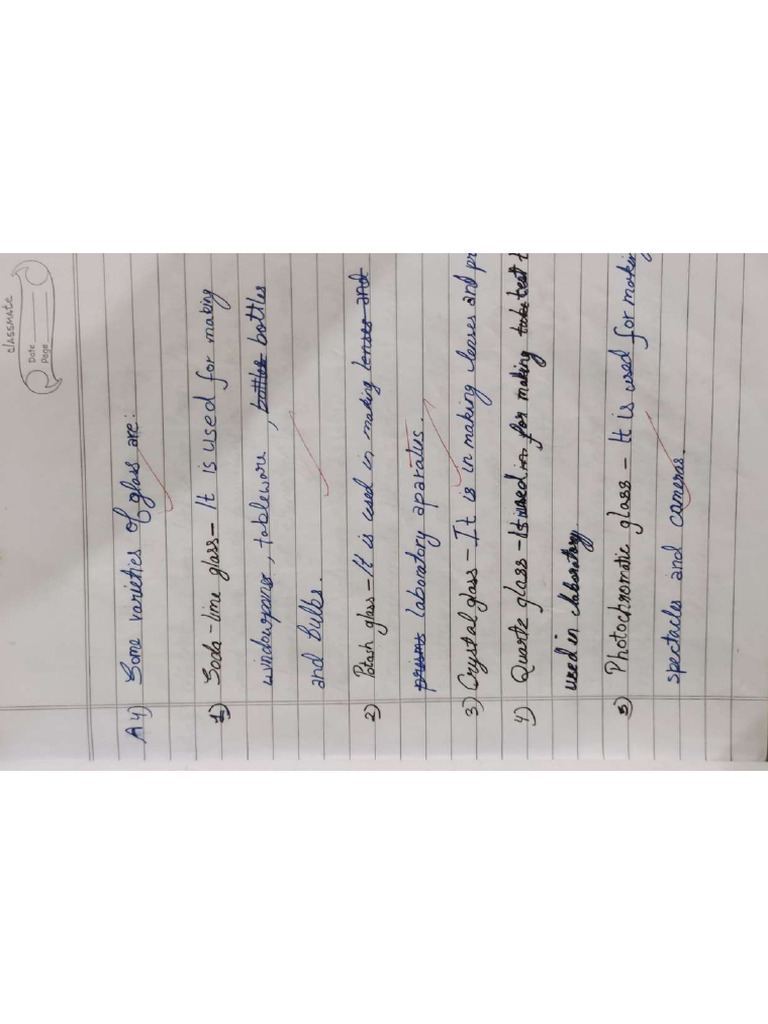 classmate
Date
Page
A4) Some varieties of glass are:
1) Soda-lime glass - It is used for making
, tableware, bottles bottles
and bulbs.
2) Potash glass - It is used in making lenses and
prisms laboratory aparatus.
3) Crystal glass - It is in making lenses and pr
4) Quartz glass - It used in for making test
used in laboratory
5) Photochromatic glass - It is used for making
spectacles and cameras.